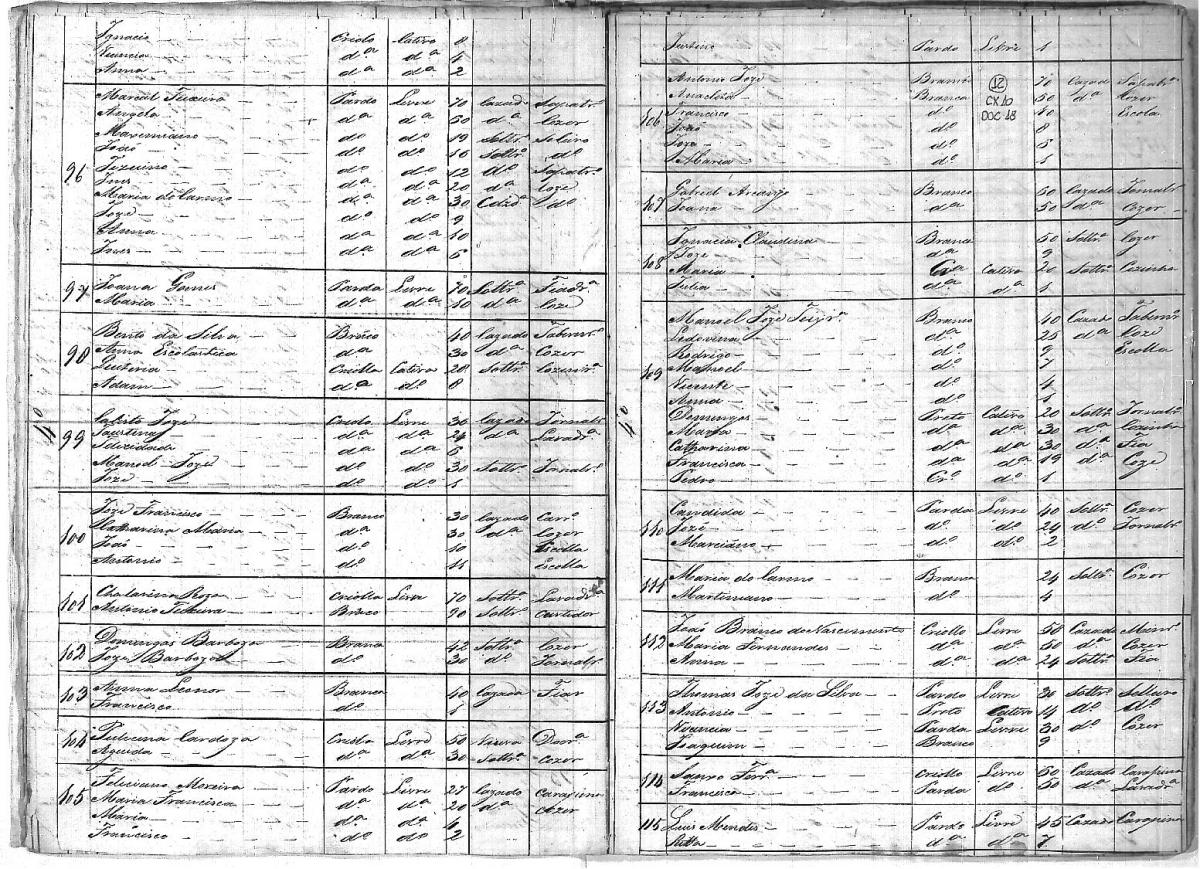 Ignacio Criolo Cativo 8
Vicencia dº dª 4
Anna dª dª 2
96 Marcal Teixeira Pardo Livre 70 Cazado Sapatrº
Angela dª dª 50 dª Cozer
Maximiano dº dº 19 Soltrº Seleiro
João dº dº 16 Soltrº dº
dº dº 12 dº Sapatrº
Ines dª dª 20 dª Coze
Maria do Carmo dª dª 30 dº
Joze dº dº 9
Anna dª dª 10
Ines dª dª 6
97 Joana Gomes Parda Livre 70 Soltrª Fiadrª
Maria dª dª 10 dª Coze
98 Bento da Silva Branco 40 Cazado Tabernrº
Anna Escolastica dª 30 dª Cozer
Criolla Cativa 28 Soltrª Cozinrª
Adam dª dº 8
4º
99 Calisto Joze Criolo Livre 30 Cazado Jornalrº
Faustina dª dª 24 dª Lavadrª
Felicidade dª dª 6
Manoel Joze dº dº 30 Soltrº Jornalrº
Joze dº dº 1
100 Joze Francisco Branco 30 Cazado Carrº
Catharina Maria dª 30 dª Cozer
João dº 10 Escolla
Antonio dº 11 Escolla
101 Chatarina Roza Criolla Livre 70 Soltrª Lavadrª
Antonio Teixeira Branco 90 Soltrº Curtidor
102 Domingas Barboza Branca 42 Soltrª Cozer
Joze Barboza dº 30 dº Jornalrº
103 Anna Leonor Branca 40 Cazada Fiar
Francisco dº 1
104 Cardoza Criola Livre 50 Viuva
Agueda dª dª 30 Soltrª Cozer
105 Feliciano Moreira Pardo Livre 27 Cazado Carapina
Maria Francisca dª dª 20 dª Cozer
Maria dª dª 4
Francisco dº dº 2
Justino Pardo Livre 1
12
CX 10
DOC 18
106 Antonio Joze Branco 70 Cazado Sapatrº
Anacleta Branca 50 dª Cozer
Francisco dº 10 Escola
João dº 8
Joze dº 5
Maria dº 1
107 Gabriel Arcanjo Branco 60 Cazado Jornalrº
Joana dª 50 dª Cozer
108 Ignacia Claudina Branca 50 Soltrª Cozer
Joze dº 9
Maria Crª Cativa 20 Soltrª Cozinha
Julia dª dª 1
109 Manoel Joze Branco 40 Cazado Tabernrº
Ledovina dª 25 dª Coze
Rodrigo dº 9 Escolla
Manoel dº 7
Vicente dº 4
Anna dª 1
4º
Domingos Preto Cativo 20 Soltrº Jornalrº
Maria dª dª 30 dª Cozinha
Catharina dª dª 30 dª Fia
Francisca dª dª 19 dª Coze
Pedro Crº dº 1
110 Candida Parda Livre 40 Soltrª Cozer
Joze dº dº 24 dº Jornalrº
Marciano dº dº 2
111 Maria do Carmo Branca 24 Soltrª Cozer
Martiniano dº 4
112 João Branco do Nascimento Criollo Livre 58 Cazado Minrº
Maria Fernandes dª dª 50 dª Cozer
Anna dª dª 24 Soltrª Fia
113 Thomas Joze da Silva Pardo Livre 30 Soltrº Selleiro
Antonio Preto Cativo 14 dº dº
Vicencia Parda Livre 30 dª Cozer
Joaquim Branco 9
114 Ferrª Criollo Livre 60 Cazado Carapina
Francisca Parda dª 50 dª Lavadrª
115 Luis Mendes Pardo Livre 45 Cazado Carapina
Ritta dª dª 7